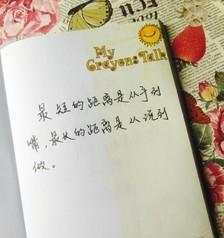 My
Grayens Talk
最短的距离是从手到
嘴，最长的距离是从说到
做。